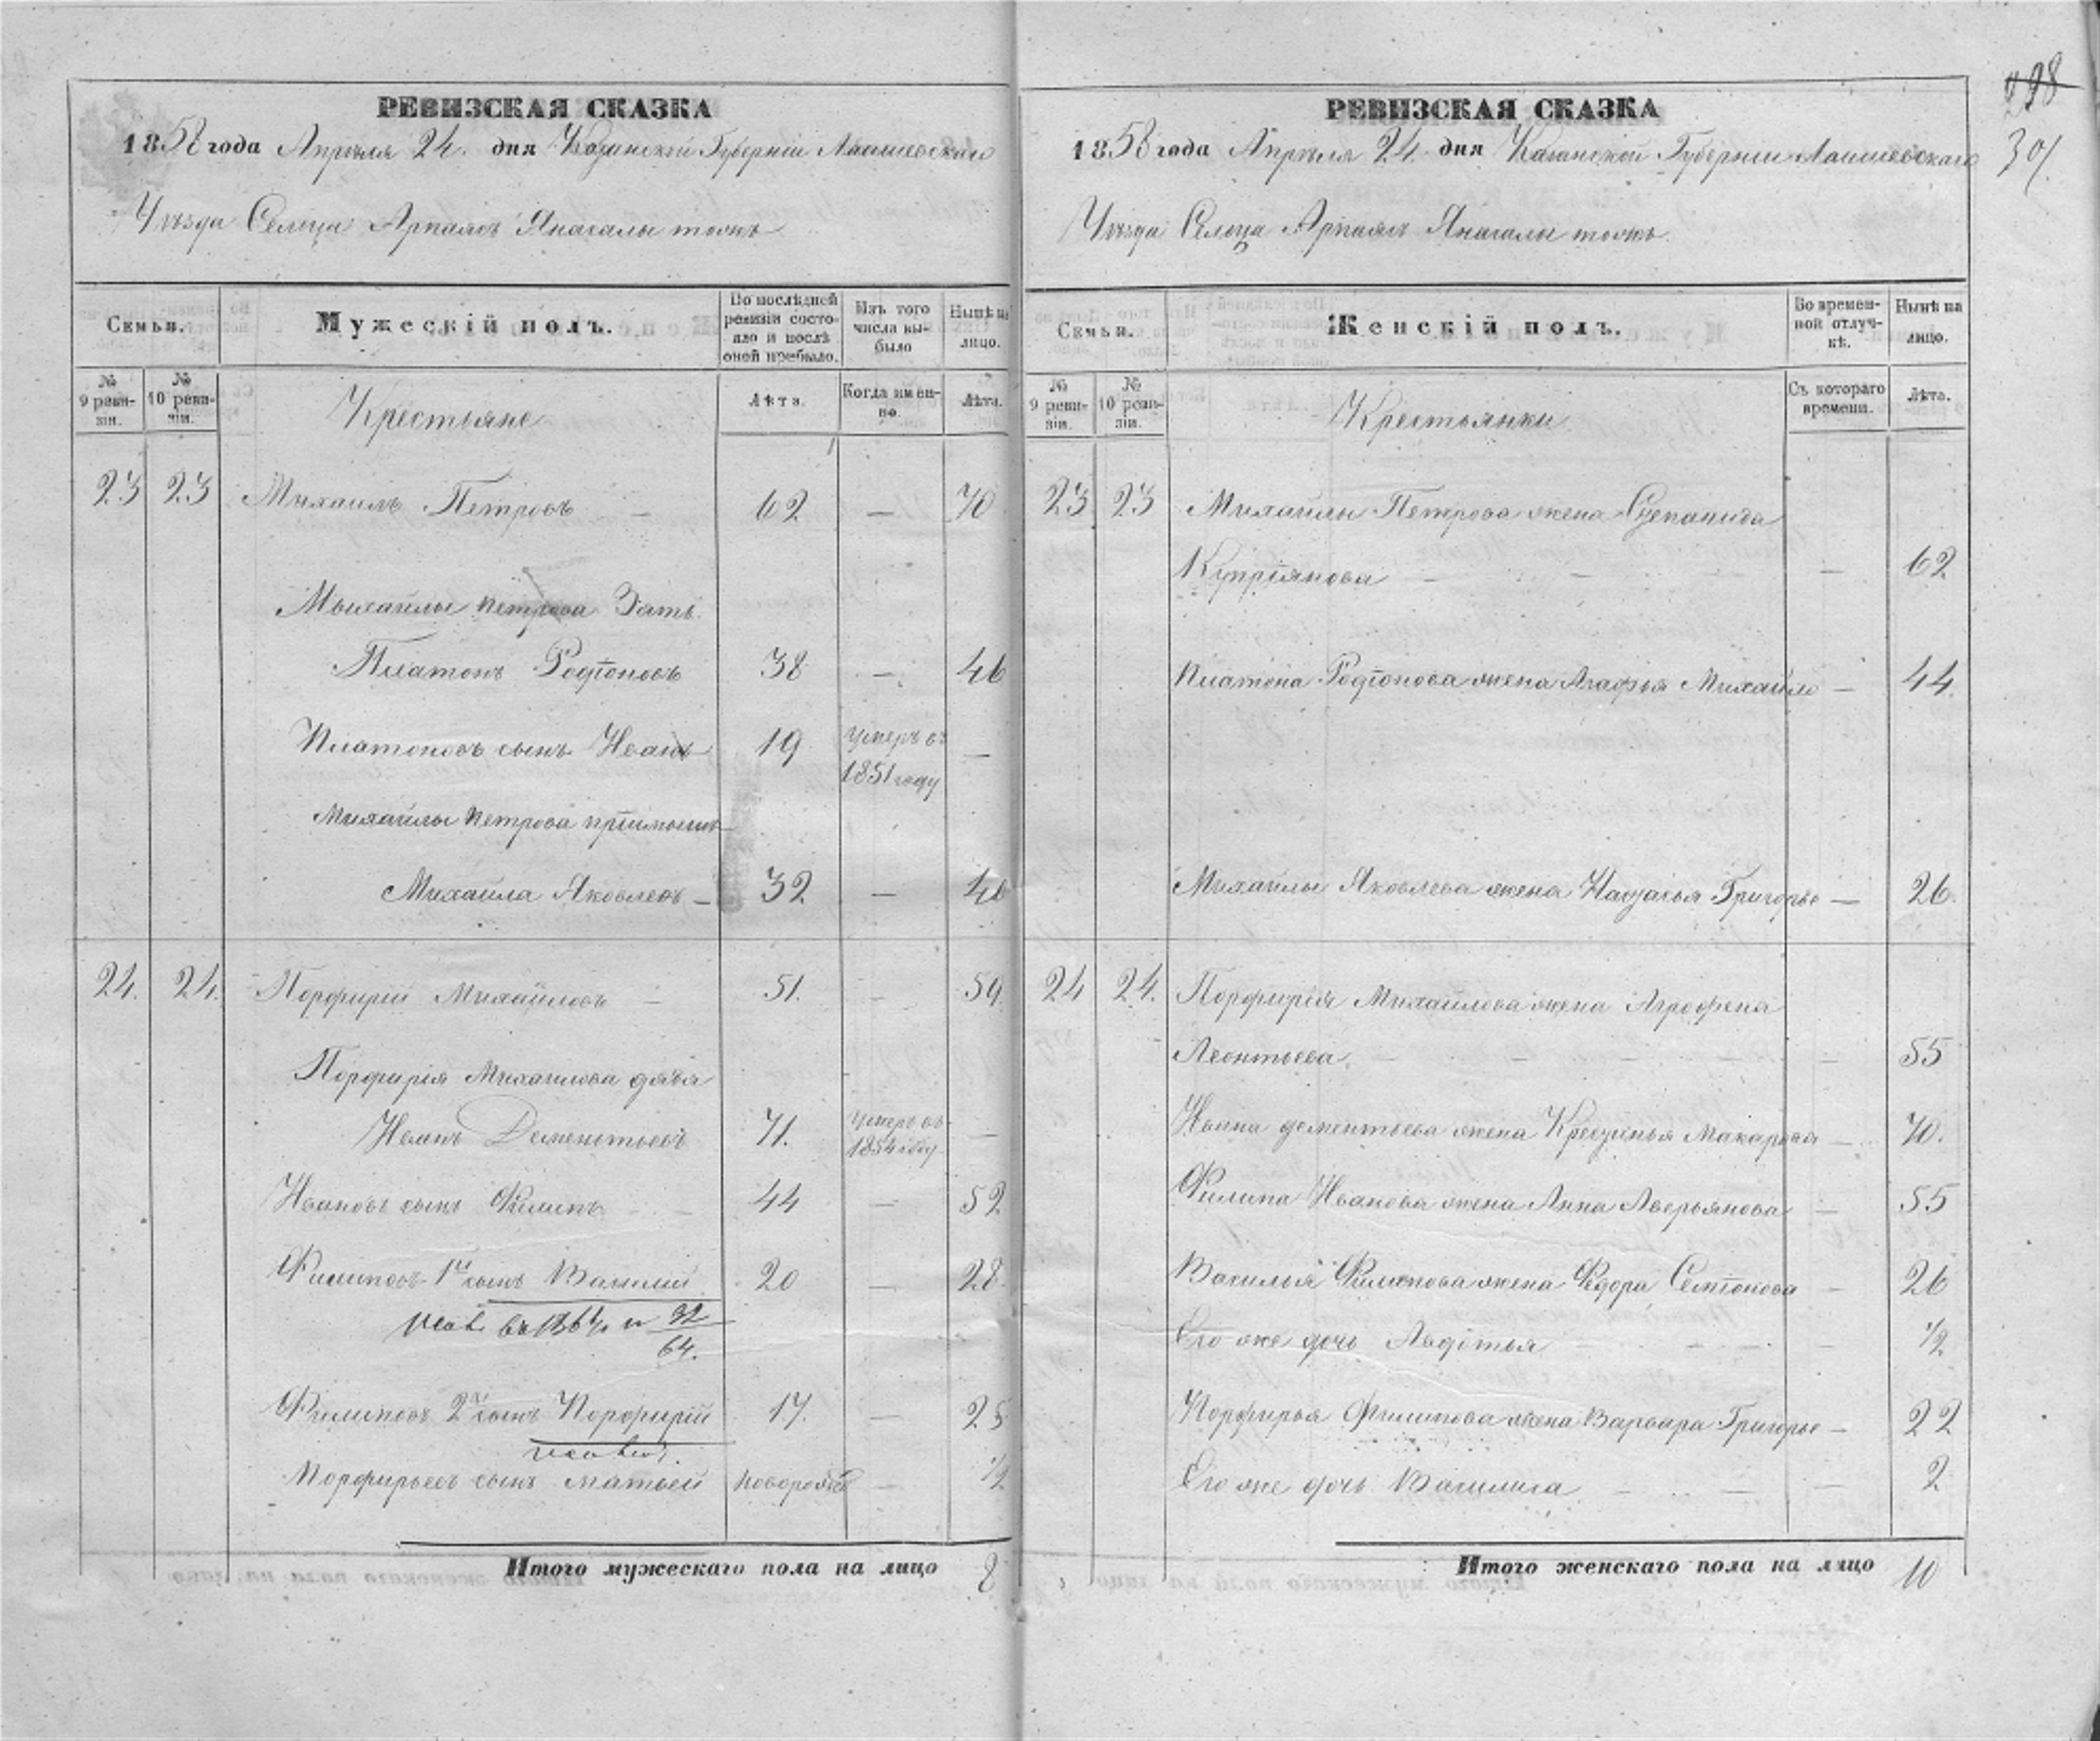 98
30
РЕВИЗСКАЯ СКАЗКА
1858 года Апрѣля 24. дня Казанской Губерніи Лаишевскаго
Уѣзда Сельца Арпаязъ Янасалы тожъ
Семьи.
Мужескій полъ.
По послѣдней ревизіи состояло и послѣ оной прибыло.
Изъ того числа выбыло
Нынѣ на лицо.
№ 9 ревизіи.
№ 10 ревизіи.
Крестьяне
Лѣта.
Когда именно.
Лѣта.
23 23 Михаилъ Петровъ — 62 — 70
Михайлы Петрова Зять
Платонъ Родіоновъ 38 — 46
Платоновъ сынъ Иванъ 19 умеръ въ 1851 году —
Михайлы Петрова пріимышъ
Михайла Яковлевъ — 32 — 40
24. 24. Порфирій Михайловъ — 51. — 59.
Порфирія Михайлова дядя
Иванъ Дементьевъ 71. умеръ въ 1854 году —
Ивановъ сынъ Филипъ — 44 — 52
Филиповъ 1й сынъ Василій 20 — 28.
32
64.
Филиповъ 2й сынъ Порфирій 17. — 25
Порфирьевъ сынъ Матвей новорож — 1/2
Итого мужескаго пола на лицо 8
РЕВИЗСКАЯ СКАЗКА
1858 года Апрѣля 24 дня Казанской Губерніи Лаишевскаго
Уѣзда Сельца Арпаязъ Янасалы тожъ.
Семьи.
Женскій полъ.
Во временной отлучкѣ.
Нынѣ на лицо.
№ 9 ревизіи.
№ 10 ревизіи.
Крестьянки
Съ котораго времени.
Лѣта.
23 23 Михайлы Петрова жена Степанида
Купріянова — — — 62
Платона Родіонова жена Агафья Михайло — 44.
Михайлы Яковлева жена Настасья Григорье — 26.
24 24. Порфирія Михайлова жена Агрофена
Леонтьева. — — — 55
Ивана дементьева жена Крестинья Макарова — 70.
Филипа Иванова жена Анна Аверьянова — 55
Василья Филипова жена Федора Семіонова — 26
Его же дочь Авдотья — 1/2
Порфирья Филипова жена Варвара Григорье — 22
Его же дочь Василиса — 2
Итого женскаго пола на лицо 10